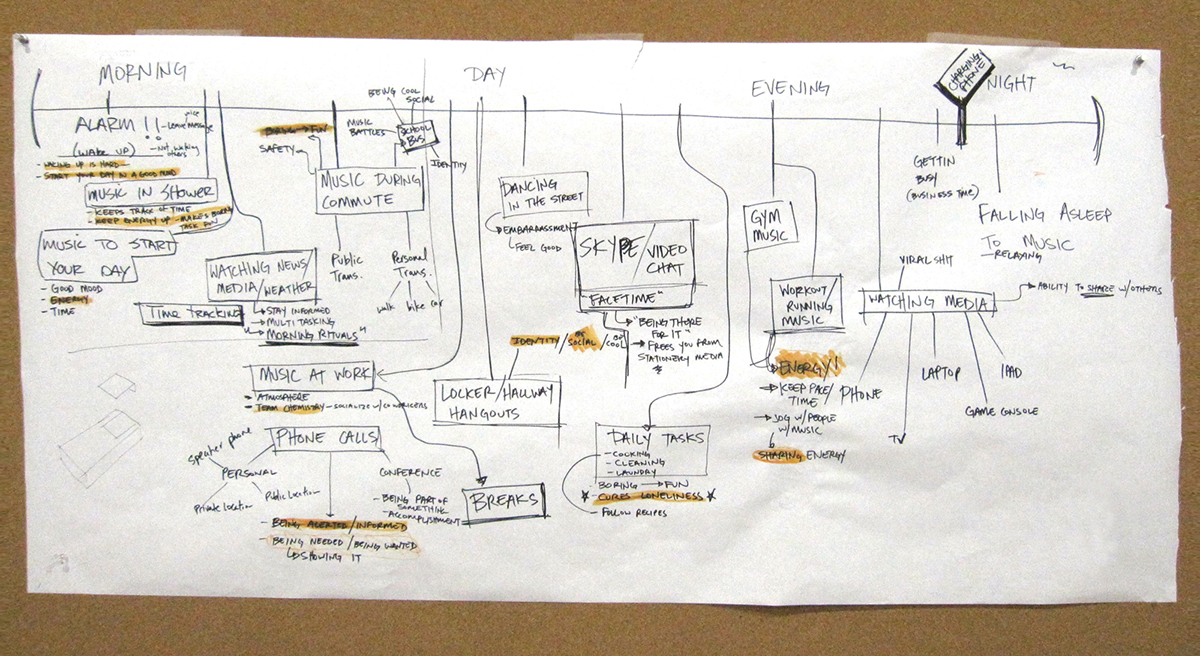 MORNING
DAY
EVENING
NIGHT
CHARGING
PHONE
ALARM !!
voice
- LEAVE MESSAGE
(WAKE UP)
- NOT WAKING
OTHERS
- WAKING UP IS HARD
- START YOUR DAY IN A GOOD MOOD
MUSIC IN SHOWER
- KEEPS TRACK OF TIME
- KEEP ENERGY UP - MAKES BORING
TASK FUN
MUSIC TO START
YOUR DAY
- GOOD MOOD
- ENERGY
- TIME
TIME TRACKING
WATCHING NEWS/
MEDIA/WEATHER
STAY INFORMED
MULTI TASKING
"MORNING RITUALS"
BORING → FUN
SAFETY
MUSIC
BATTLES
BEING COOL
SOCIAL
SCHOOL
BUS
IDENTITY
MUSIC DURING
COMMUTE
Public
Trans.
Personal
Trans.
walk bike car
MUSIC AT WORK
ATMOSPHERE
TEAM CHEMISTRY - SOCIALIZE W/ COWORKERS
PHONE CALLS
speaker phone
PERSONAL
Public Location
Private Location
CONFERENCE
- BEING PART OF
SOMETHING
- ACCOMPLISHMENT
- BEING ALERTED/INFORMED
- BEING NEEDED/BEING WANTED
SHOWING IT
BREAKS
DANCING
IN THE STREET
EMBARRASSMENT
FEEL GOOD
IDENTITY/SOCIAL/COOL
LOCKER/HALLWAY
HANGOUTS
SKYPE/VIDEO
CHAT
"FACETIME"
"BEING THERE
FOR IT"
FREES YOU FROM
STATIONERY MEDIA
DAILY TASKS
- COOKING
- CLEANING
- LAUNDRY
- BORING → FUN
- CURES LONELINESS
- FOLLOW RECIPES
GYM
MUSIC
WORKOUT/
RUNNING
MUSIC
ENERGY!
KEEP PACE/
TIME
JOG W/ PEOPLE
W/ MUSIC
SHARING ENERGY
GETTIN
BUSY
(BUSINESS TIME)
FALLING ASLEEP
TO MUSIC
- RELAXING
VIRAL SHIT
WATCHING MEDIA
ABILITY TO SHARE W/ OTHERS
PHONE
TV
LAPTOP
GAME CONSOLE
IPAD